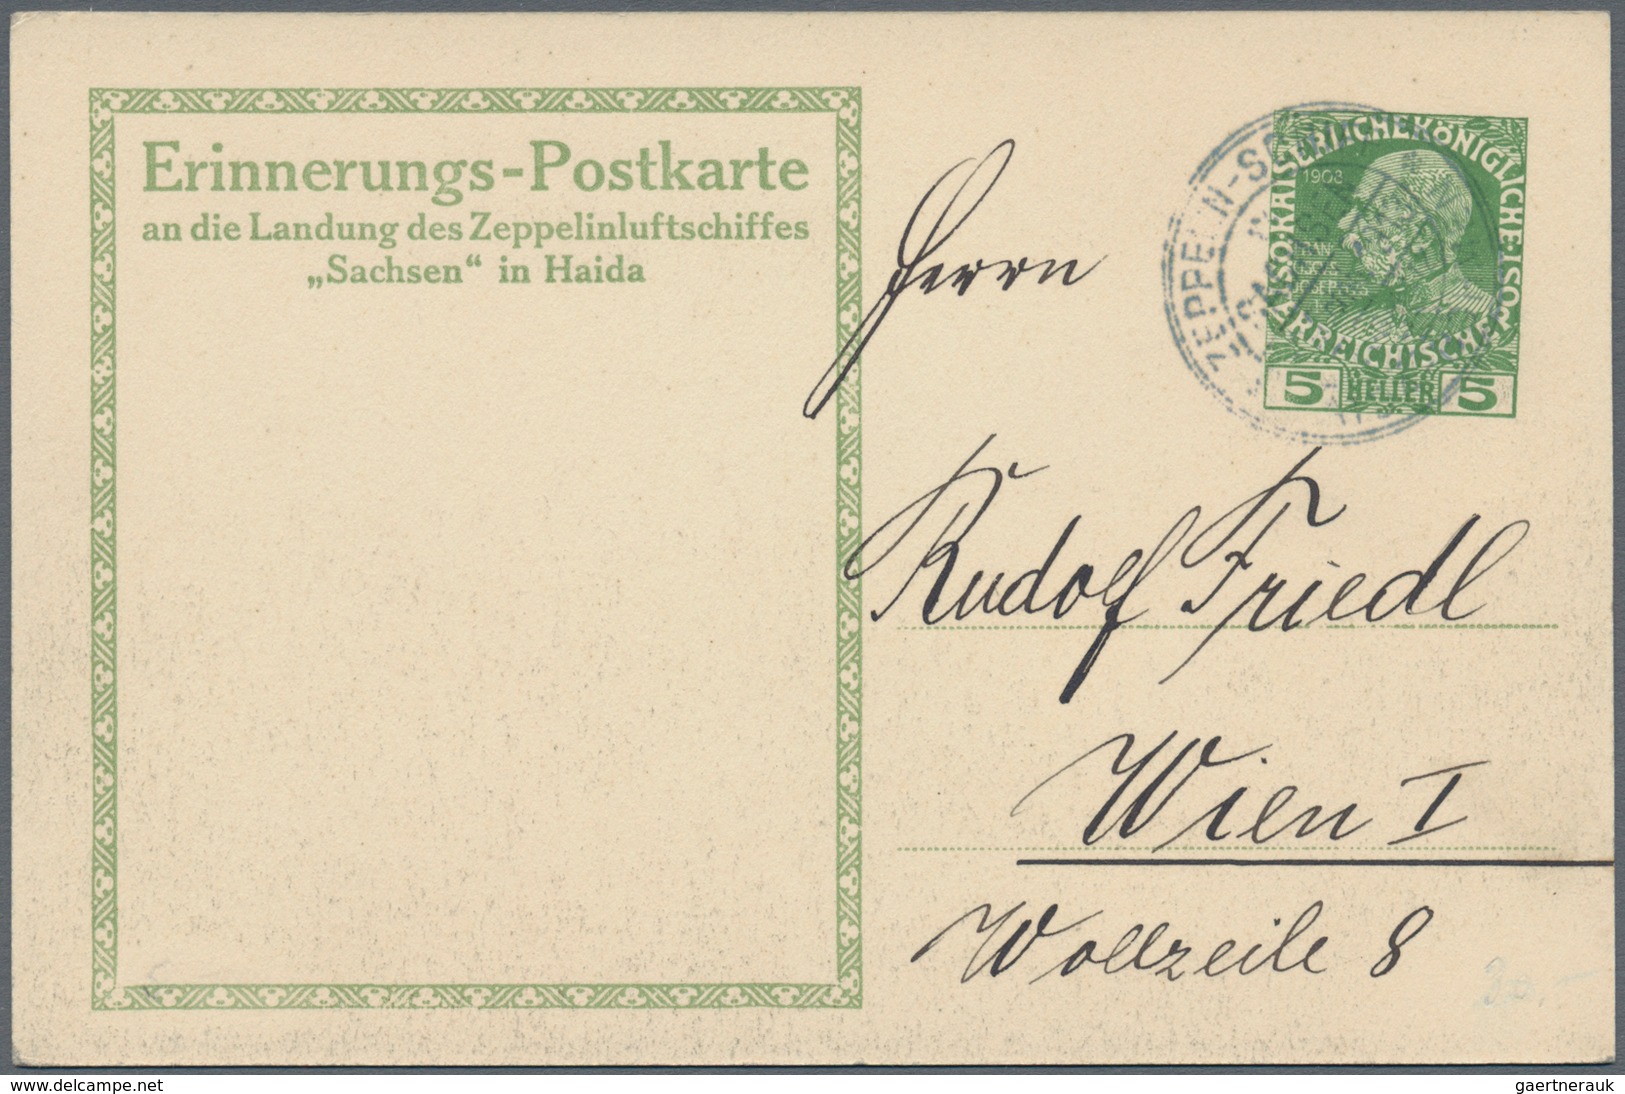 Erinnerungs-Postkarte
an die Landung des Zeppelinluftschiffes
„Sachsen“ in Haida
ZEPPELIN-
KAISERLICHE KÖNIGLICHE
ÖSTERREICHISCHE
1908
5 HELLER 5
Herrn
Rudolf Friedl
Wien I
Wollzeile 8
20.-
www.delcampe.net
gaertnerauk